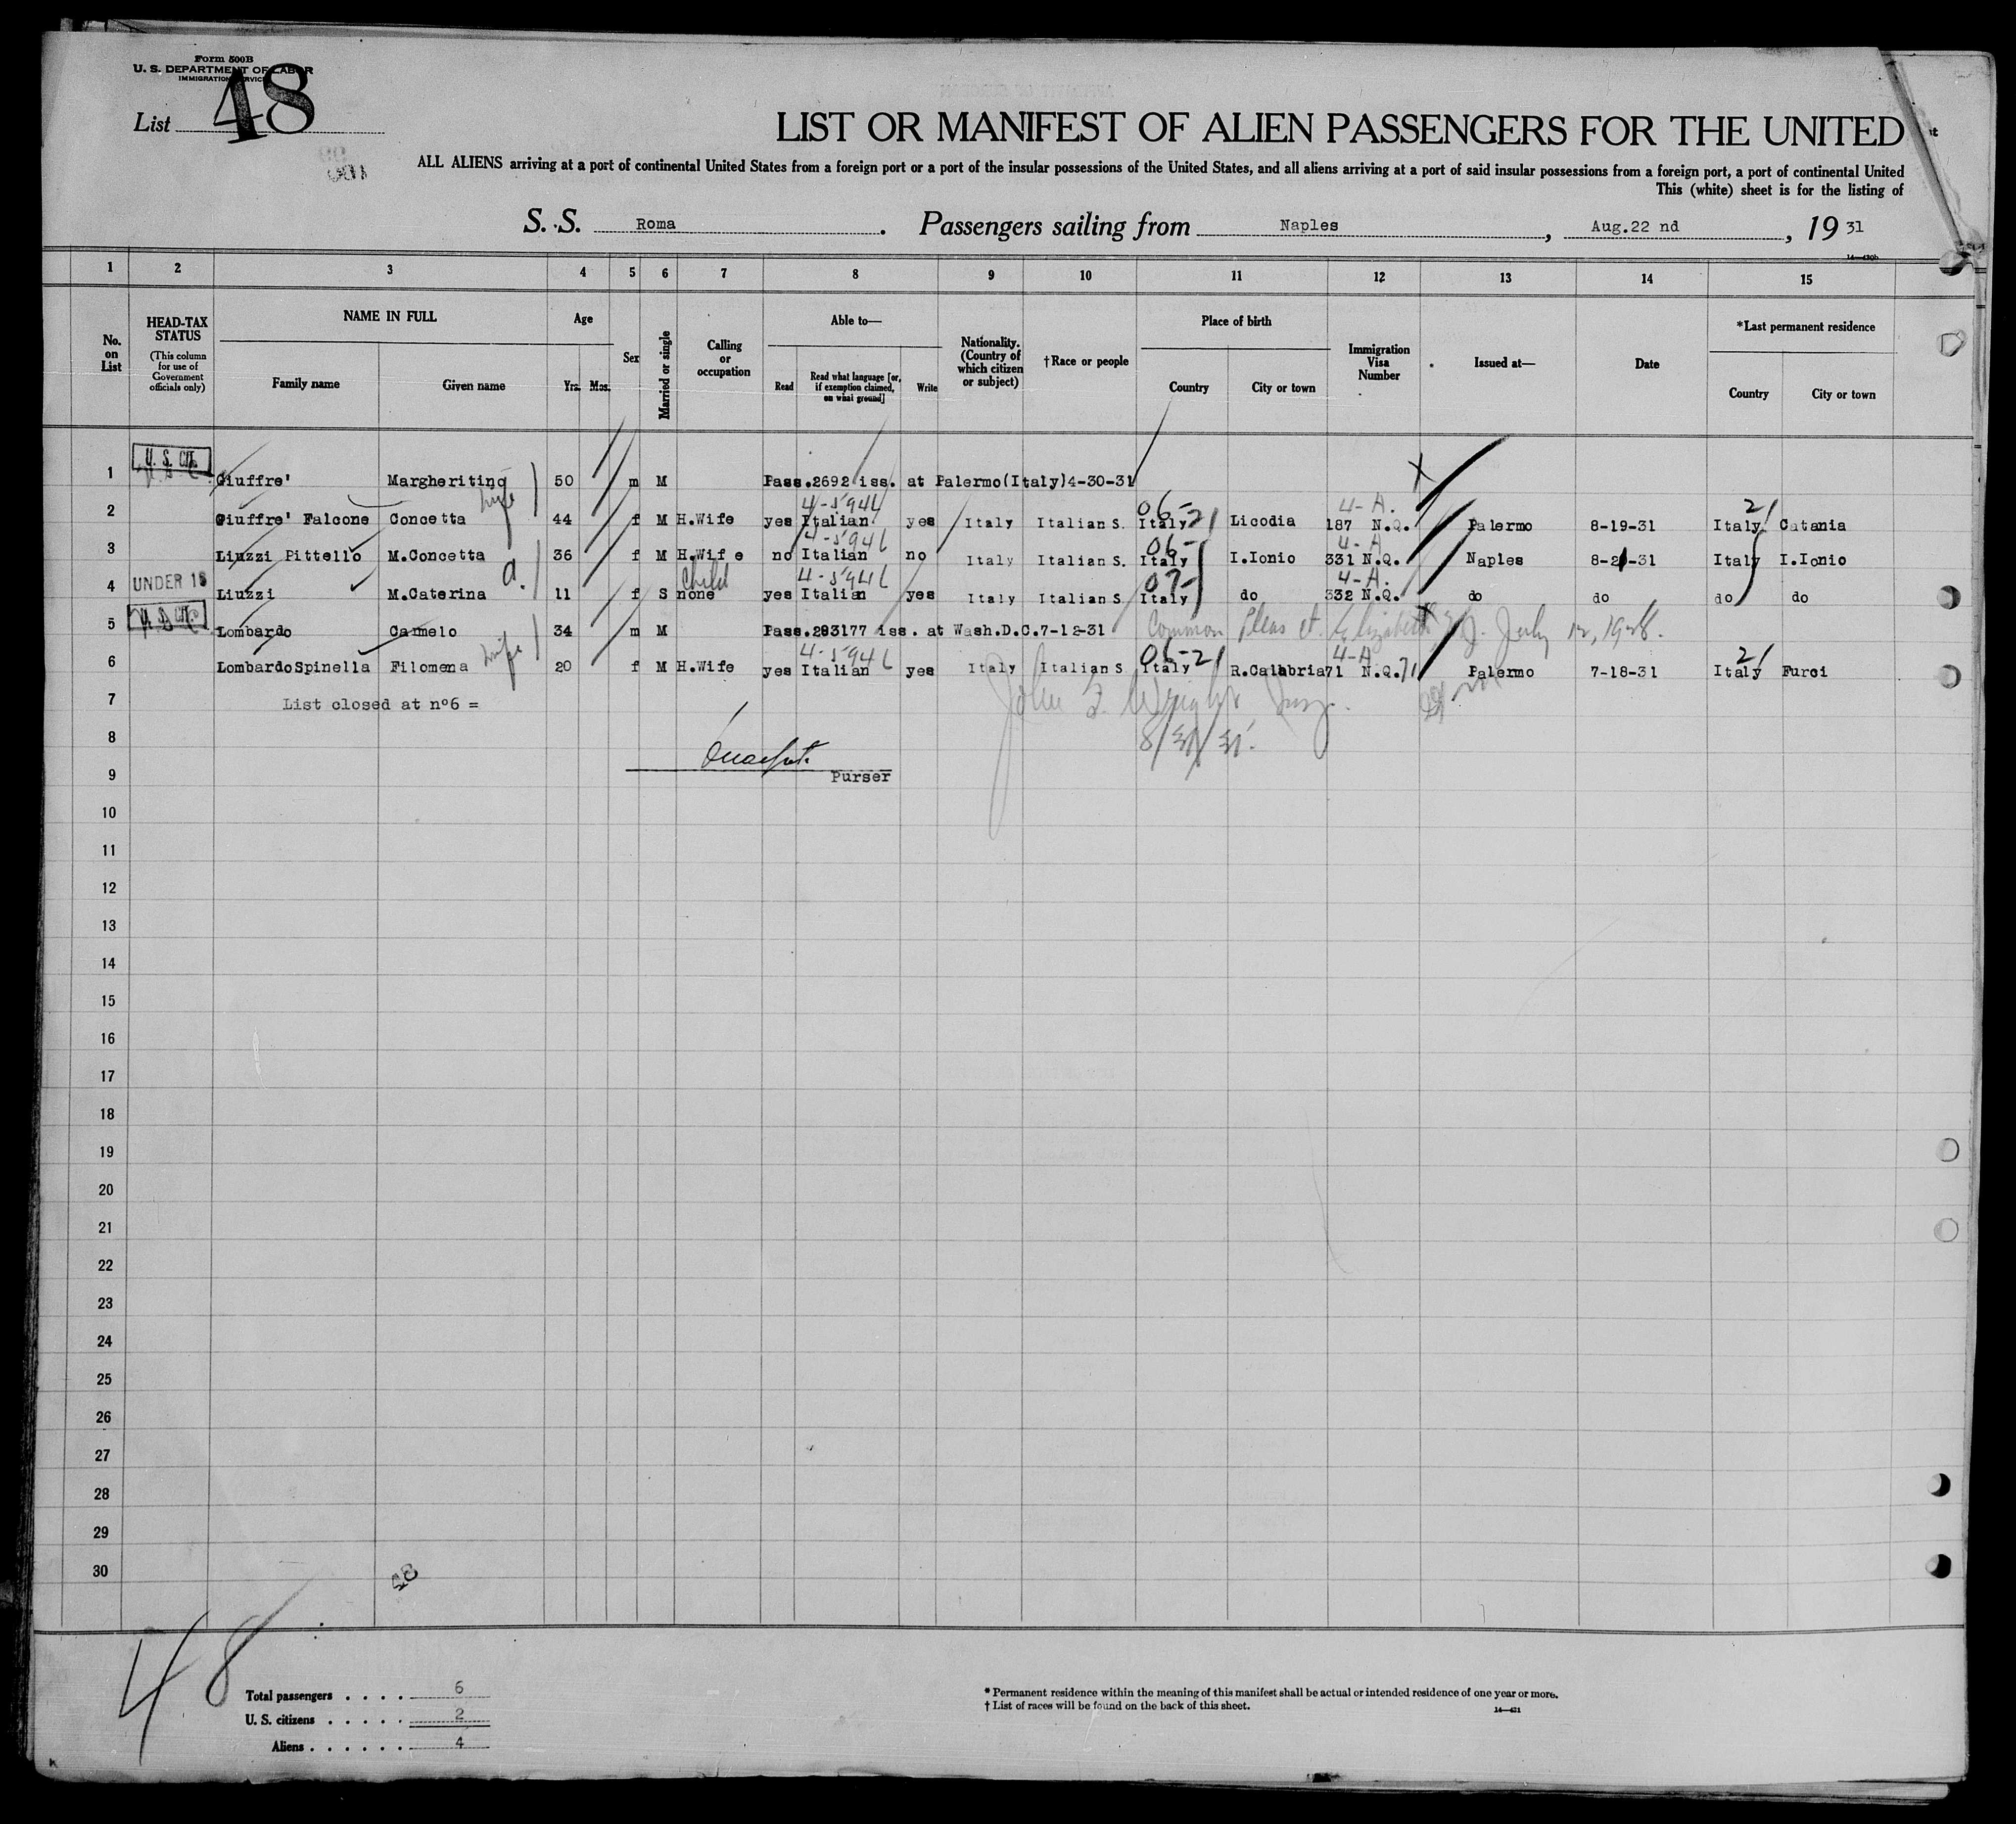 Form 500B
U. S. DEPARTMENT OF LABOR
IMMIGRATION SERVICE
List 48
LIST OR MANIFEST OF ALIEN PASSENGERS FOR THE UNITED
ALL ALIENS arriving at a port of continental United States from a foreign port or a port of the insular possessions of the United States, and all aliens arriving at a port of said insular possessions from a foreign port, a port of continental United
This (white) sheet is for the listing of
S. S. Roma. Passengers sailing from Naples, Aug.22 nd, 19 31
14—430b
1 2 3 4 5 6 7 8 9 10 11 12 13 14 15
No. on List
HEAD-TAX STATUS (This column for use of Government officials only)
NAME IN FULL
Family name Given name
Age
Yrs. Mos.
Sex
Married or single
Calling or occupation
Able to—
Read Read what language [or, if exemption claimed, on what ground] Write
Nationality. (Country of which citizen or subject)
†Race or people
Place of birth
Country City or town
Immigration Visa Number
Issued at—
Date
*Last permanent residence
Country City or town
U. S. CIT.
1 Giuffre' Margheritino 50 m M Pass.2692 iss. at Palermo(Italy)4-30-31
wife 4-5946 06-2 4-A. 2
2 Giuffre' Falcone Concetta 44 f M H.Wife yes Italian yes Italy Italian S. Italy Licodia 187 N.Q. Palermo 8-19-31 Italy Catania
4-5946 06- 4-A
3 Liuzzi Pittello M.Concetta 36 f M H.Wife no Italian no Italy Italian S. Italy I.Ionio 331 N.Q. Naples 8-21-31 Italy I.Ionio
d. Child 4-5946 07- 4-A.
4 UNDER 16 Liuzzi M.Caterina 11 f S none yes Italian yes Italy Italian S Italy do 332 N.Q. do do do do
U. S. CIT.
5 Lombardo Carmelo 34 m M Pass.293177 iss. at Wash.D.C.7-12-31 Common Pleas ct. Elizabeth N.J. July 12, 1928.
wife 4-5946 06-2 4-A 2
6 LombardoSpinella Filomena 20 f M H.Wife yes Italian yes Italy Italian S Italy R.Calabria 71 N.Q. 71 Palermo 7-18-31 Italy Furci
7 List closed at n°6 = John F. Wright Insp.
8 8/31/31.
9 Purser
10
11
12
13
14
15
16
17
18
19
20
21
22
23
24
25
26
27
28
29
30
48
48
Total passengers . . . . 6
U. S. citizens . . . . . 2
Aliens . . . . . . 4
* Permanent residence within the meaning of this manifest shall be actual or intended residence of one year or more.
† List of races will be found on the back of this sheet.
14—431